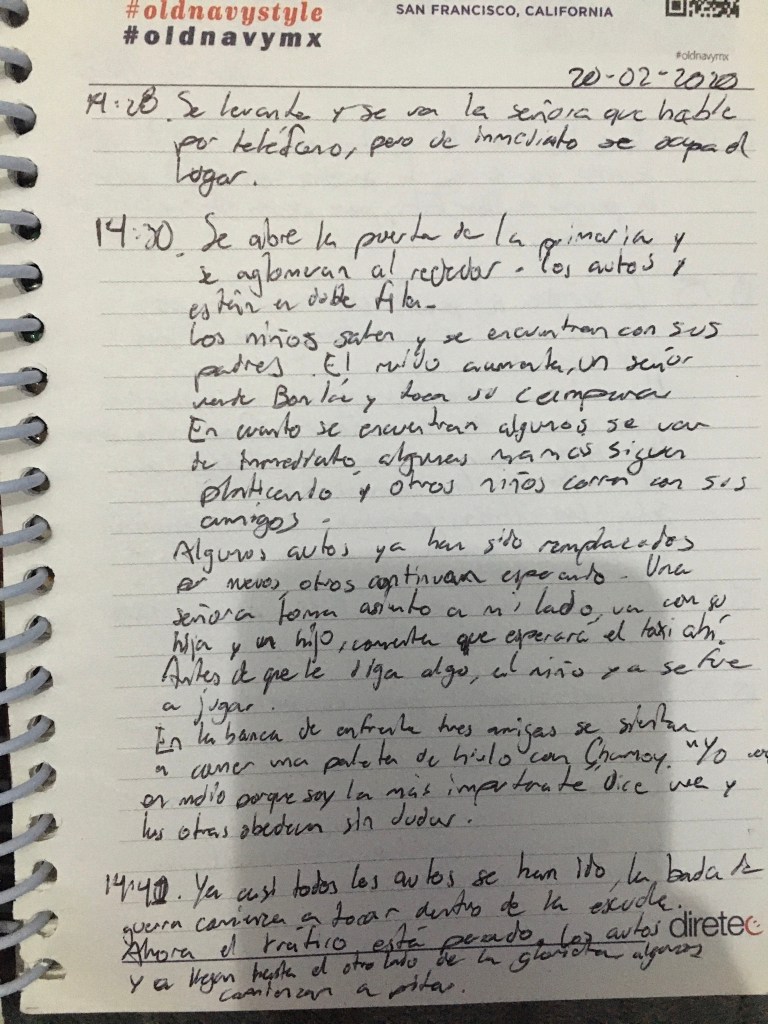 #oldnavystyle
#oldnavymx
SAN FRANCISCO, CALIFORNIA
#oldnavymx
20-02-2020
14:28. Se levanta y se va la señora que hable
por teléfono, pero de inmediato se ocupa el
lugar.
14:30. Se abre la puerta de la primaria y
se aglomeran al rededor. los autos y
están en doble fila.
Los niños salen y se encuentran con sus
padres. El ruido aumenta, un señor
vende Bon Ice y toca su campana
En cuanto se encuentran algunos se van
de inmediato, algunas mamás siguen
platicando y otros niños corren con sus
amigos.
Algunos autos ya han sido remplazados
por nuevos, otros continuan esperando. Una
señora toma asiento a mi lado, va con su
hija y un hijo, comenta que esperará el taxi ahí.
Antes de que le diga algo, el niño ya se fue
a jugar.
En la banca de enfrente tres amigas se sientan
a comer una paleta de hielo con Chamoy. "Yo voy
en medio porque soy la más importante", dice una y
las otras obedecen sin dudar.
14:41. Ya casi todos los autos se han ido, la banda de
guerra comienza a tocar dentro de la escuela.
Ahora el tráfico está pesado, los autos
ya llegan hasta el otro lado de la glorieta algunos
comienzan a pitar.
diretec